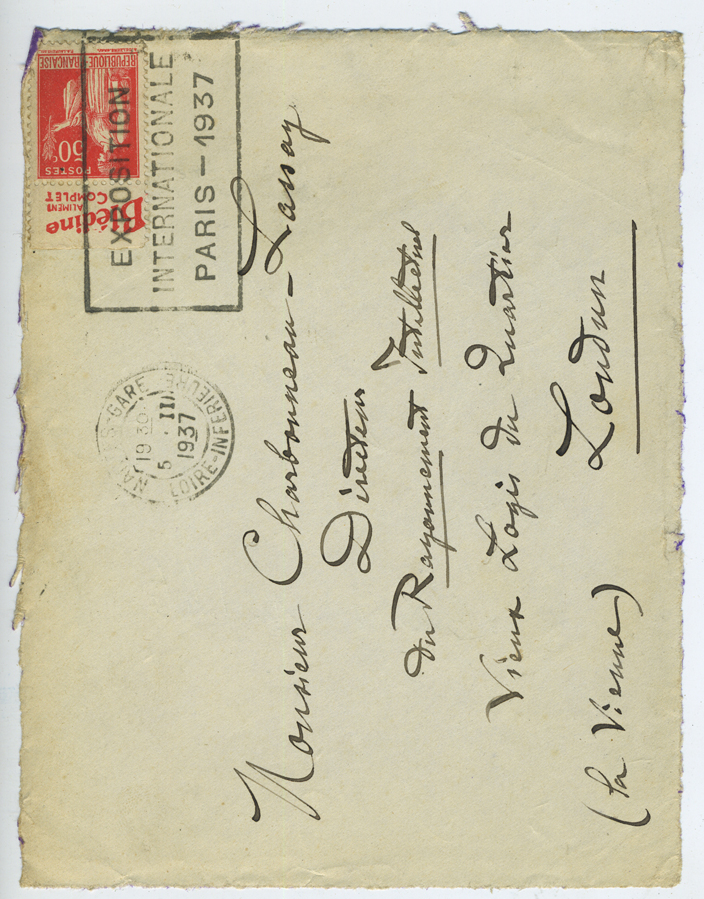 RÉPUBLIQUE-FRANÇAISE
50c
POSTES
Blédine
ALIMENT
COMPLET
EXPOSITION
INTERNATIONALE
PARIS-1937
NANTES-GARE
19 30
5 - III
1937
LOIRE-INFERIEURE
Monsieur Charbonneau-Lassay
Directeur
du Rayonnement Intellectuel
Vieux Logis du Quartier
Loudun
(la Vienne)